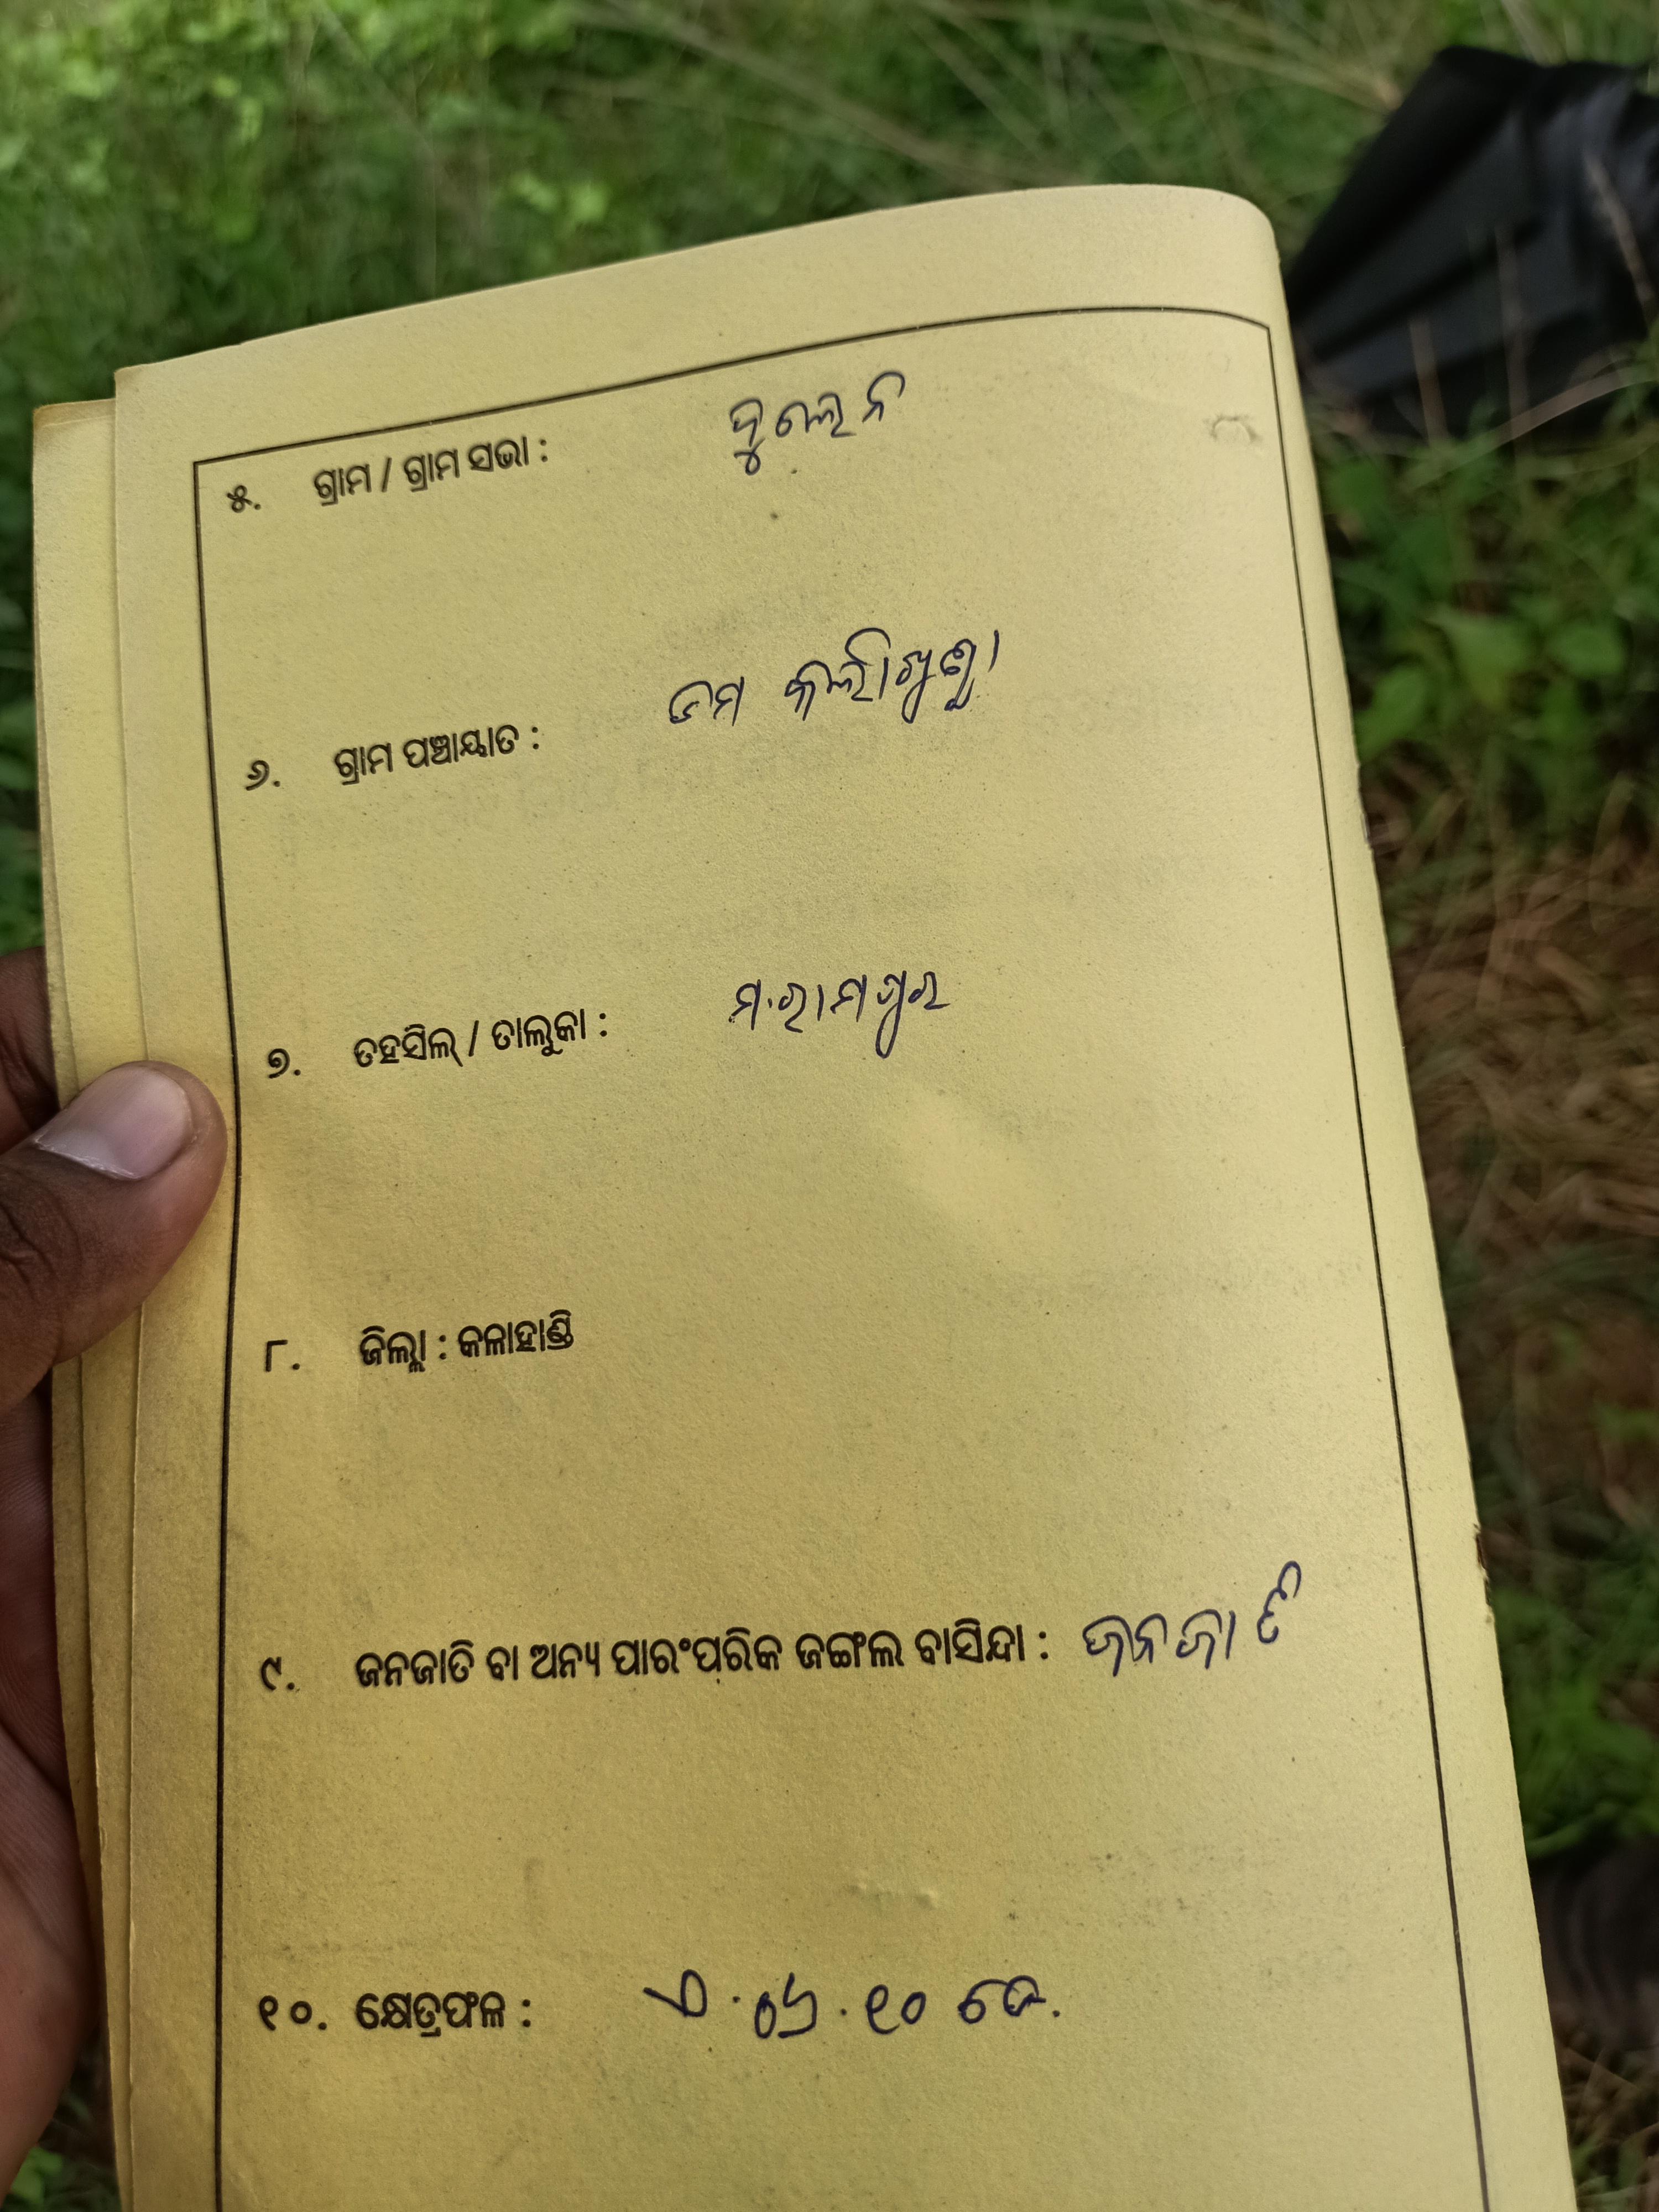 ୫. ଗ୍ରାମ / ଗ୍ରାମ ସଭା : ଦୁଲେନ
୬. ଗ୍ରାମ ପଞ୍ଚାୟାତ :
୭. ତହସିଲ୍ / ତାଲୁକା : ମ.ରାମପୁର
୮. ଜିଲ୍ଲା : କଳାହାଣ୍ଡି
୯. ଜନଜାତି ବା ଅନ୍ୟ ପାରଂପରିକ ଜଙ୍ଗଲ ବାସିନ୍ଦା : ଜନଜାତି
୧୦. କ୍ଷେତ୍ରଫଳ : ଏ.୦୬.୧୦ ଡେ.